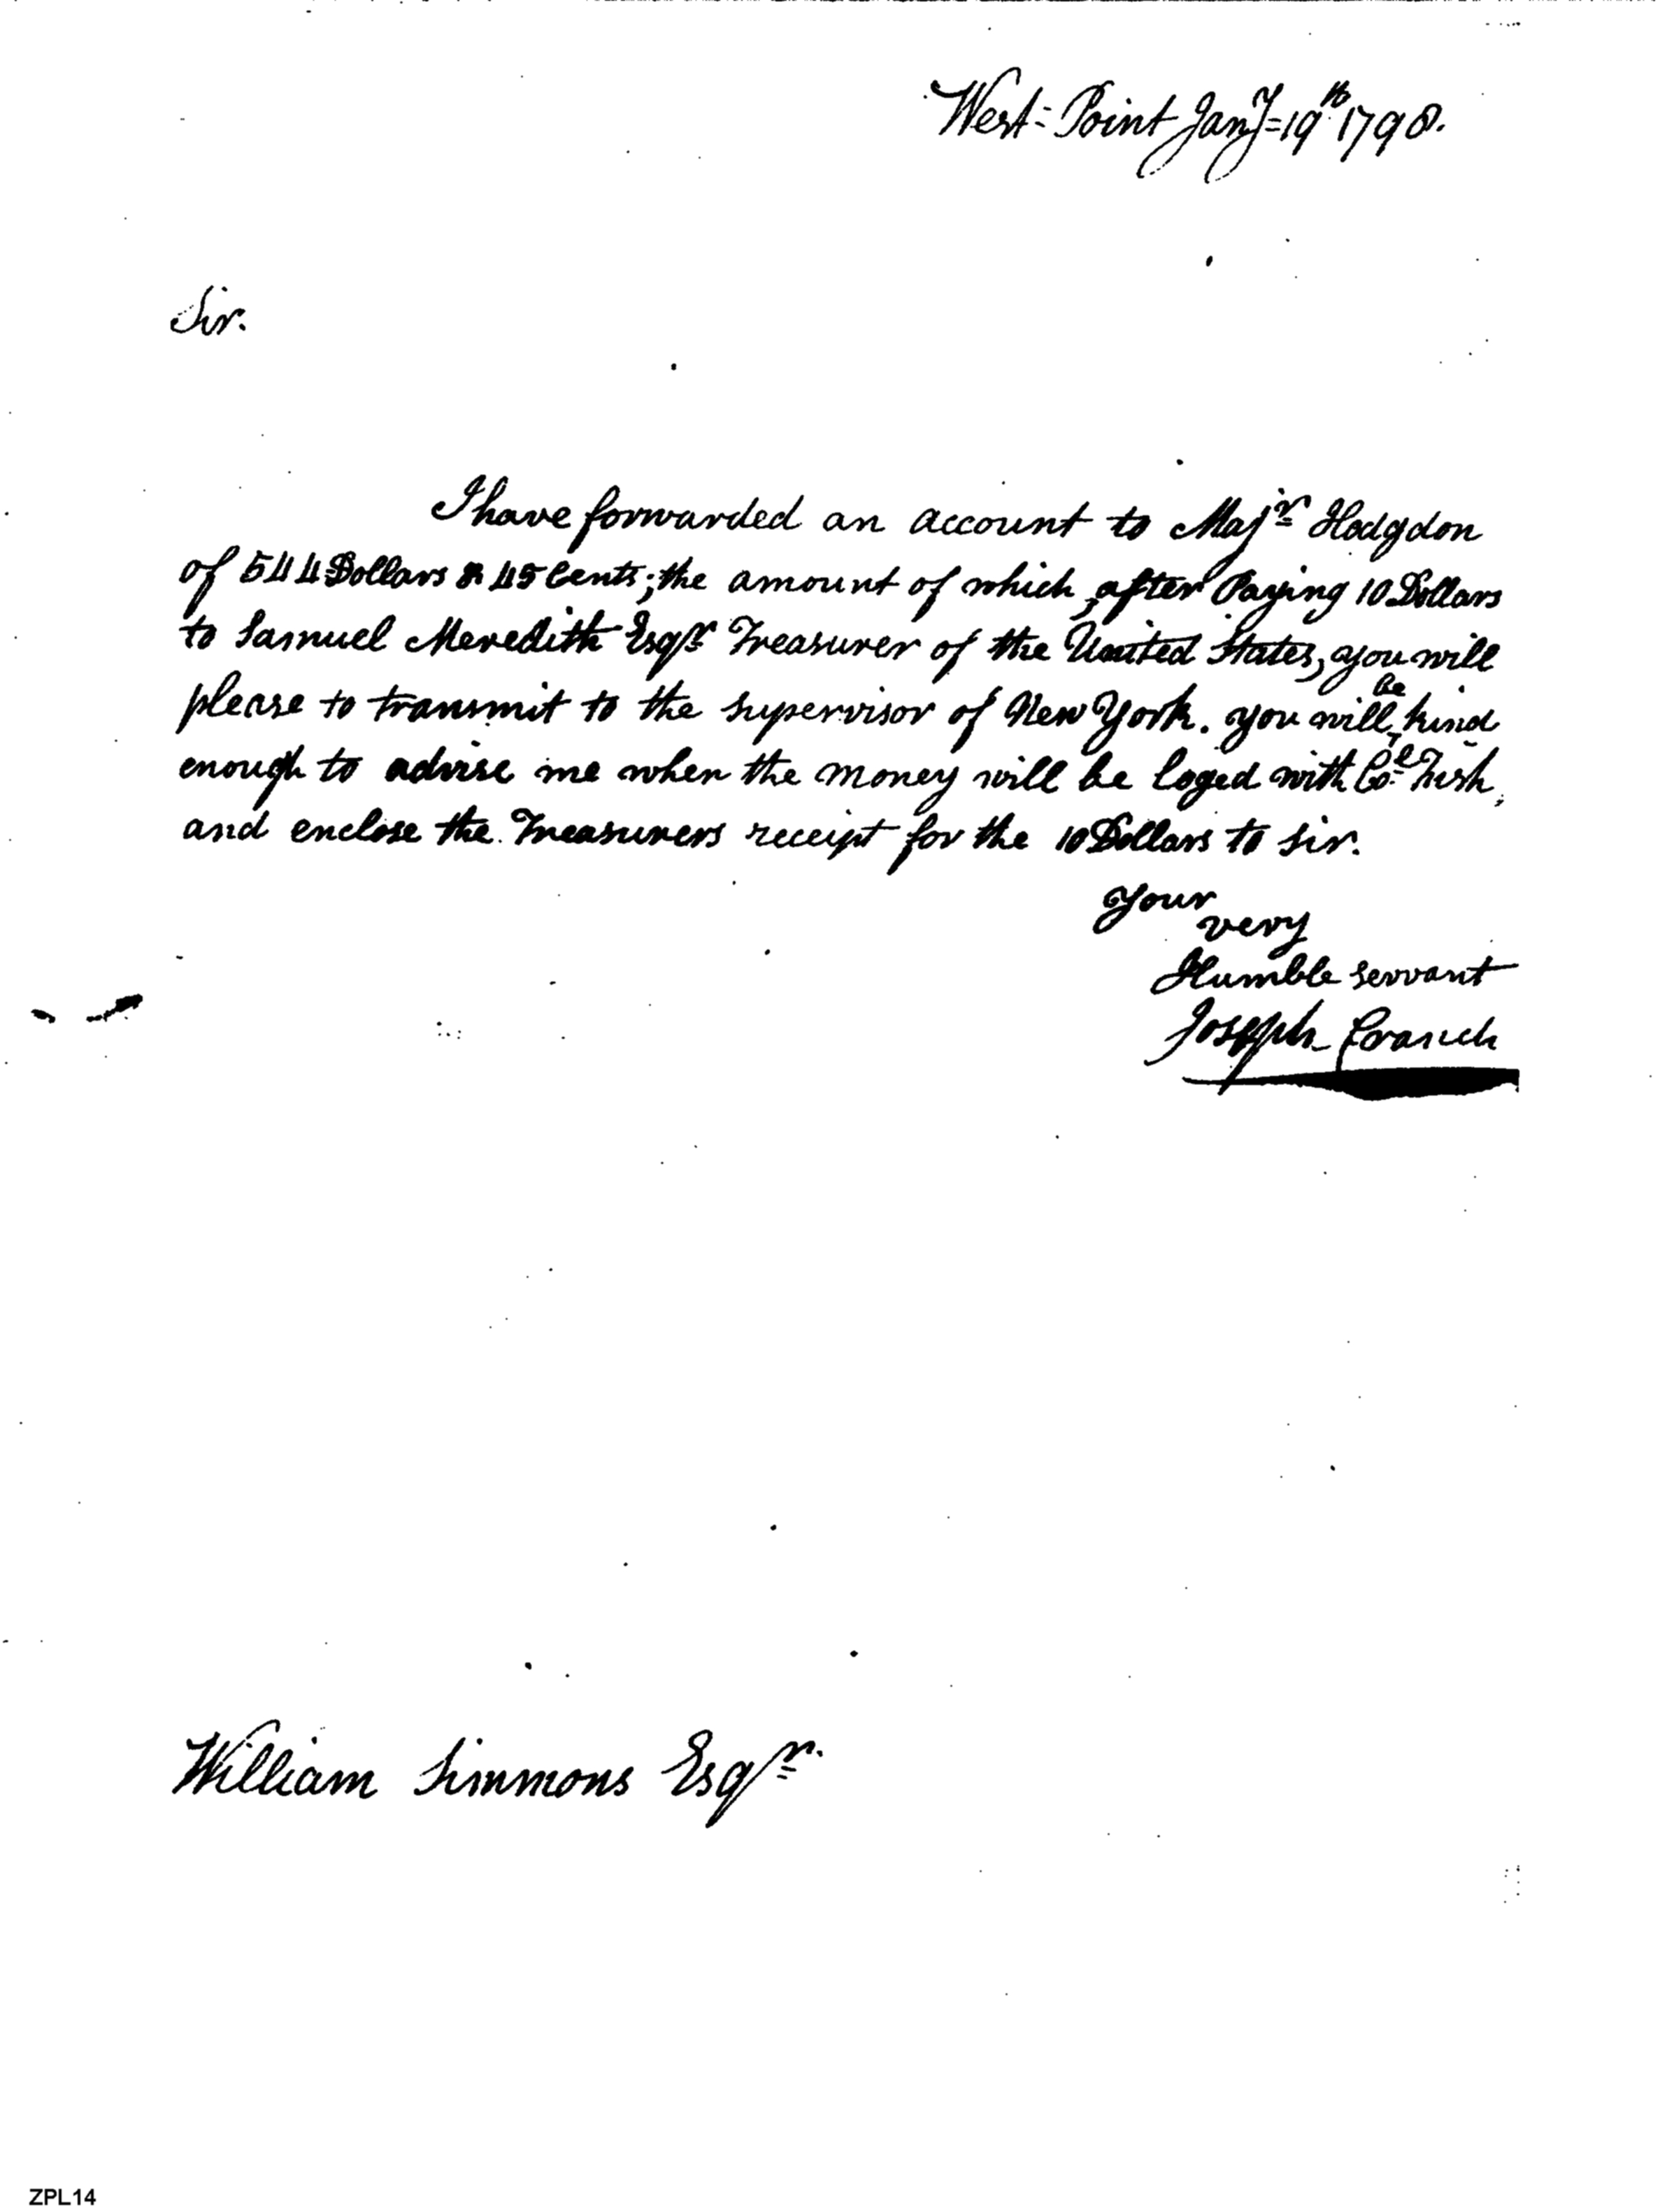 West-Point Jany 19th 1798.
Sir.
I have forwarded an account to Majr Hodgdon
of 544 Dollars & 45 Cents; the amount of which, after Paying 10 Dollars
to Samuel Meredith Esqr Treasurer of the United States, you will
please to transmit to the supervisor of New York. you will be kind
enough to advise me when the money will be loged with Col Fish,
and enclose the Treasurers receipt for the 10 Dollars to sir.
Your
very
Humble servant
Joseph Cranch
William Simmons Esqr.
ZPL14